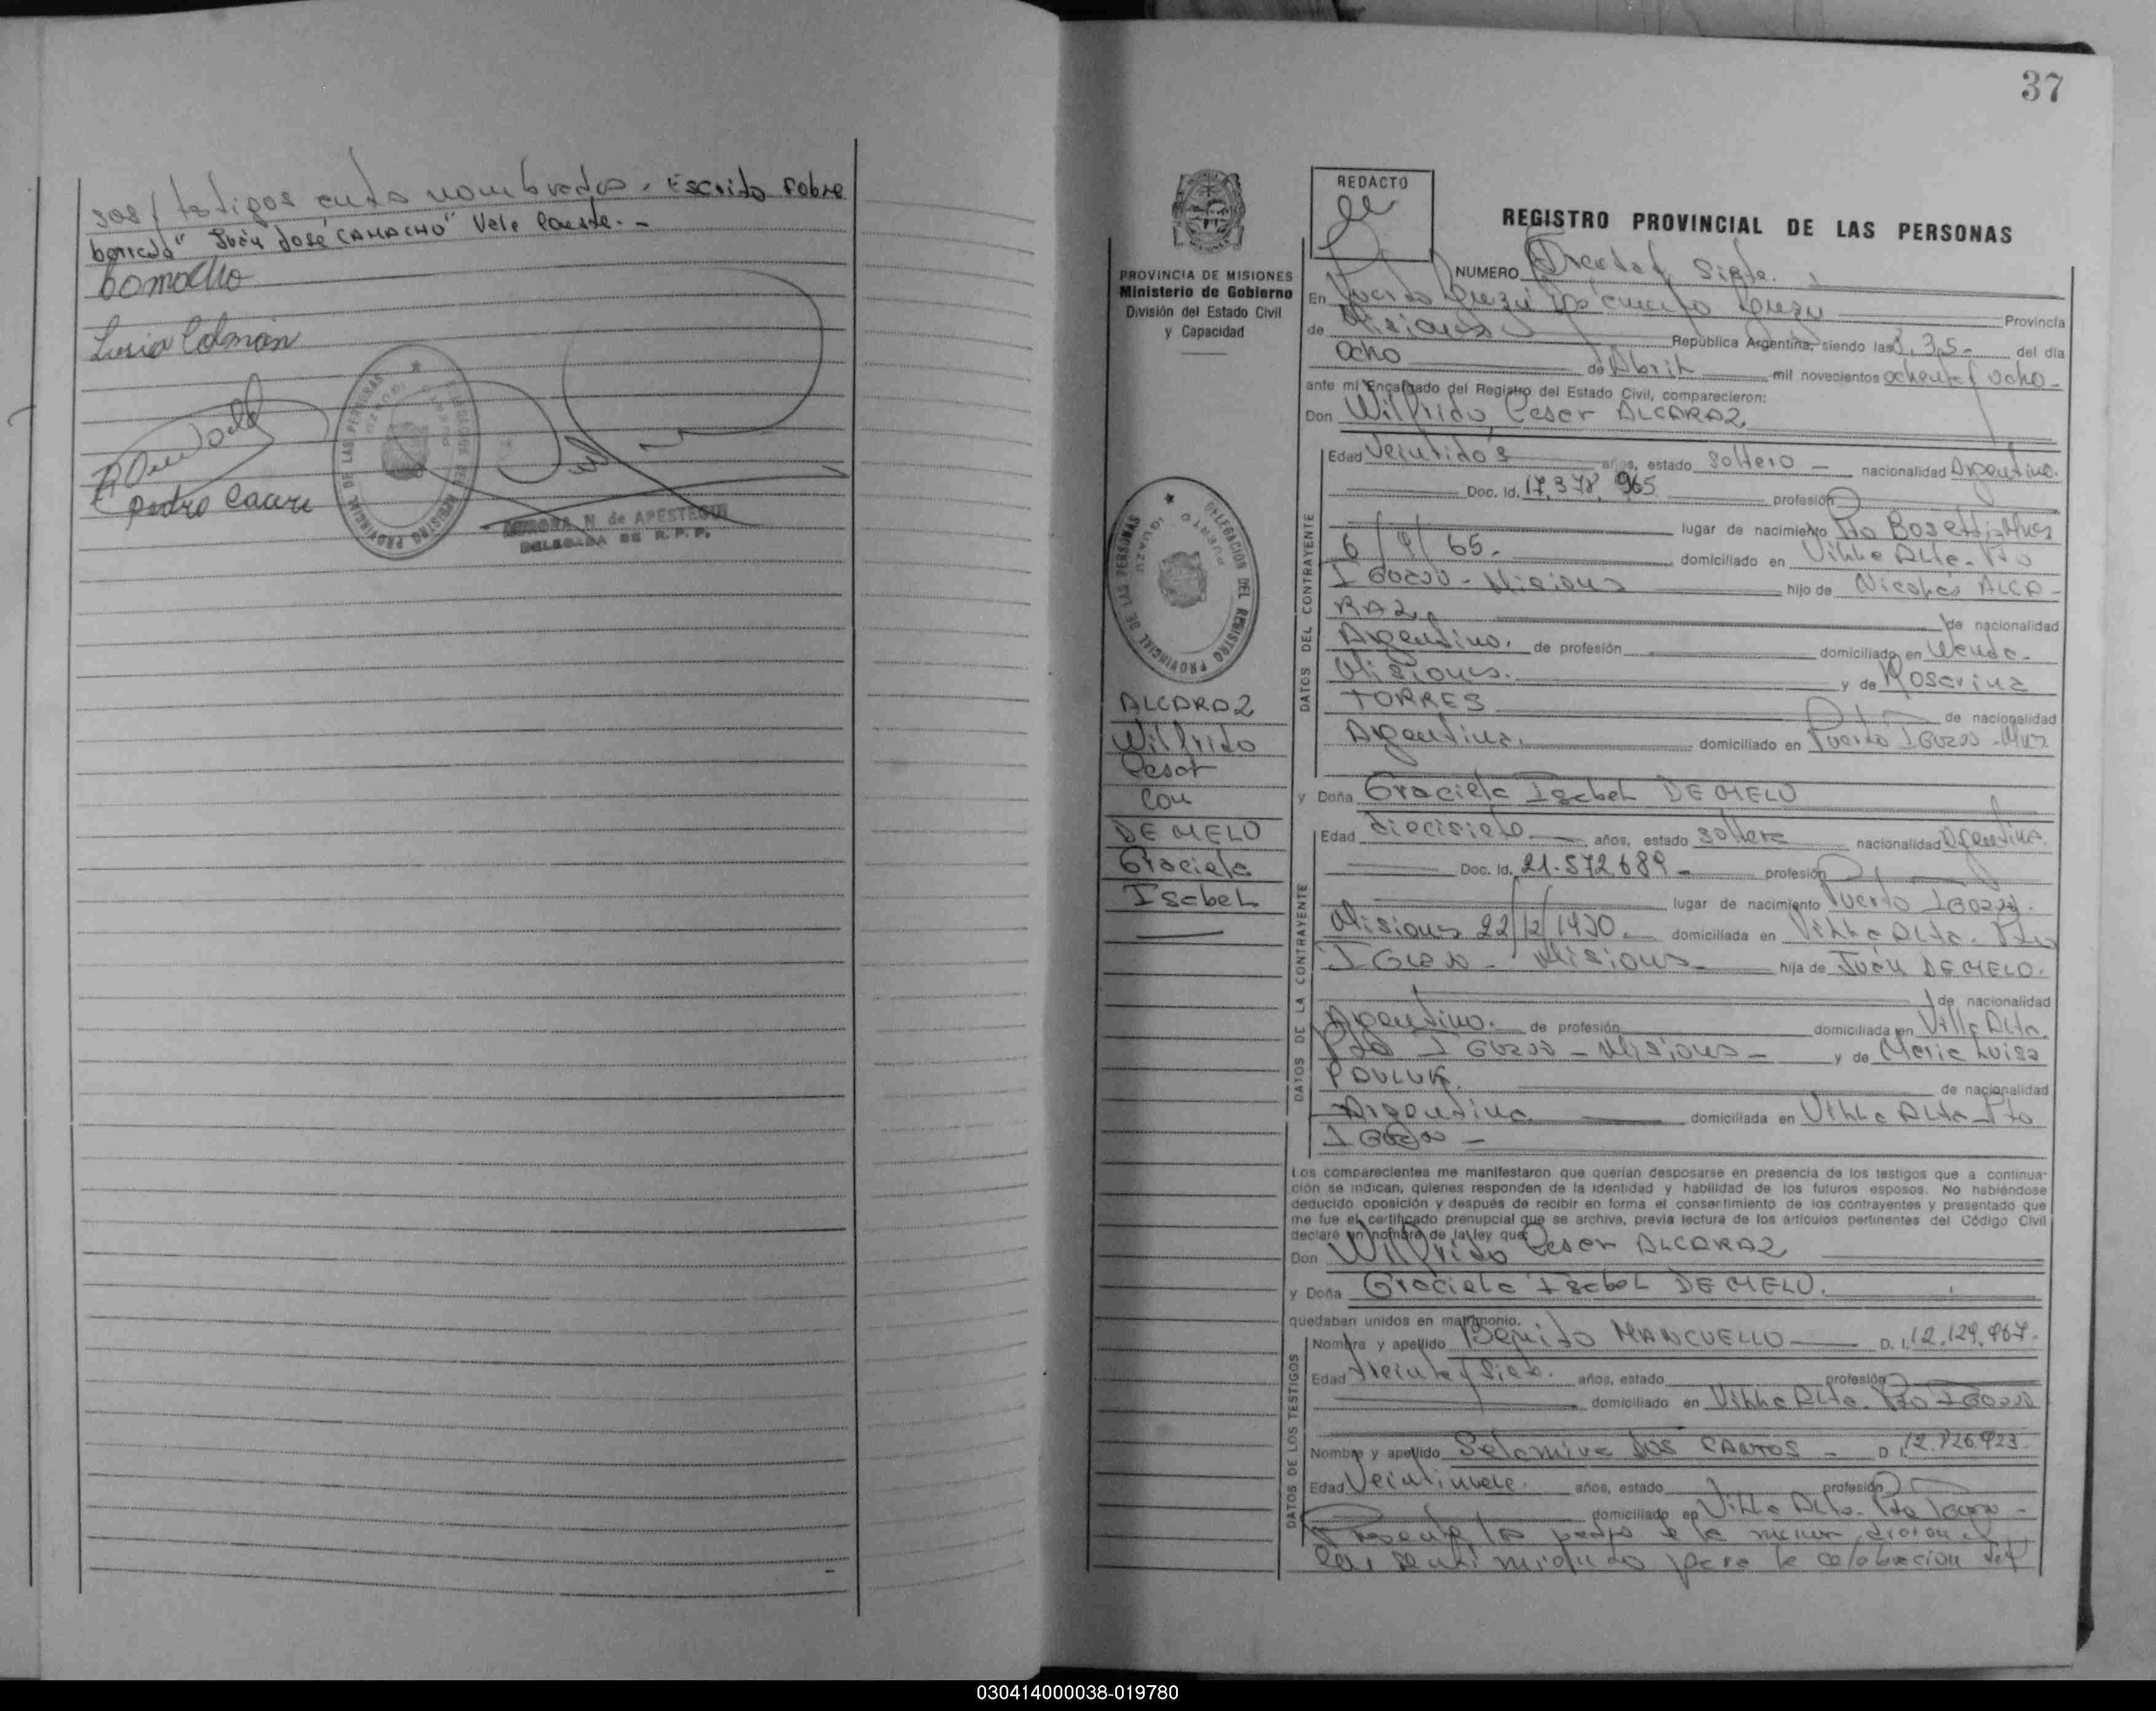 sos y testigos antes nombrados. Escrito sobre
borrado "Juan José CAMACHO" Vale Conste.-
Camacho
Lucia Colmán
Pedro
DELEGACION DEL REGISTRO PROVINCIAL DE LAS PERSONAS
PUERTO IGUAZU
AURORA N. de APESTEGUI
DELEGADA DE R. P. P.
37
PROVINCIA DE MISIONES
Ministerio de Gobierno
División del Estado Civil
y Capacidad
REDACTO
REGISTRO PROVINCIAL DE LAS PERSONAS
NUMERO Treinta y siete.
En Puerto Iguazú Dpto Iguazu Provincia
de Misiones República Argentina, siendo las 1,35- del día
Ocho de Abril mil novecientos ochenta y ocho-
ante mí Encargado del Registro del Estado Civil, comparecieron:
Don Wilfrido Cesar ALCARAZ
DATOS DEL CONTRAYENTE
Edad Veintidós años, estado soltero - nacionalidad Argentino.
Doc. Id. 17.378.965 profesión
lugar de nacimiento Pto Bosetti
6/9/65. domiciliado en Villa Alta. Pto
Iguazu - Misiones hijo de Nicolás ALCA-
RAZ. de nacionalidad
Argentino. de profesión domiciliado en Wanda-
Misiones. y de Rosarina
TORRES de nacionalidad
Argentina. domiciliado en Puerto Iguazu - Mnes
y Doña Graciela Isabel DE MELO
DATOS DE LA CONTRAYENTE
Edad diecisiete años, estado soltera nacionalidad Argentina
Doc. Id. 21.572.689- profesión
lugar de nacimiento Puerto Iguazu.
Misiones 22/12/1970. domiciliada en Villa Alta. Pto
Iguazu - Misiones hija de Juan DE MELO.
de nacionalidad
Argentino. de profesión domiciliada en Villa Alta.
Pto Iguazu - Misiones - y de Maria Luisa
PAULUK. de nacionalidad
Argentina domiciliada en Villa Alta - Pto
Iguazu -
Los comparecientes me manifestaron que querían desposarse en presencia de los testigos que a continua-
ción se indican, quienes responden de la identidad y habilidad de los futuros esposos. No habiéndose
deducido oposición y después de recibir en forma el consentimiento de los contrayentes y presentado que
me fue el certificado prenupcial que se archiva, previa lectura de los artículos pertinentes del Código Civil
declaré en nombre de la ley que
Don Wilfrido Cesar ALCARAZ
y Doña Graciela Isabel DE MELO.
quedaban unidos en matrimonio.
DATOS DE LOS TESTIGOS
Nombre y apellido Benito MANCUELLO D. I. 12.129.967.
Edad treinta y siete. años, estado profesión
domiciliado en Villa Alta. Pto Iguazu
Nombre y apellido Selamiva DOS SANTOS - D. I. 12.726.923.
Edad Veintinueve. años, estado profesión
domiciliado en Villa Alta. Pto Iguazu -
Presente los padres de la menor dieron el
consentimiento para la celebración del
DELEGACION DEL REGISTRO PROVINCIAL DE LAS PERSONAS
PUERTO IGUAZU
ALCARAZ
Wilfrido
Cesar
Con
DE MELO
Graciela
Isabel
030414000038-019780